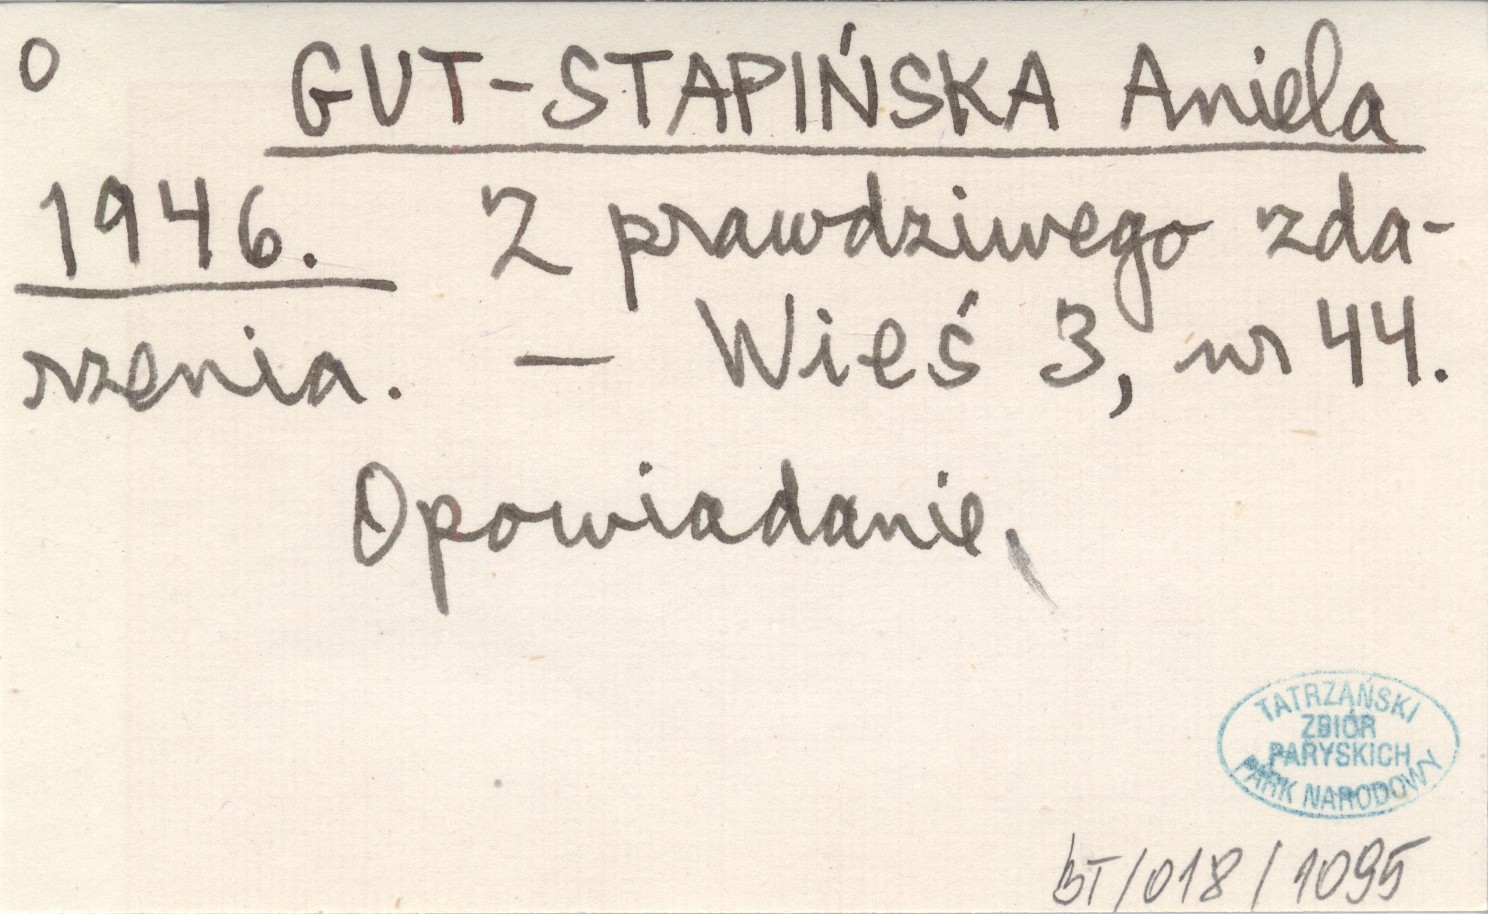 O GUT-STAPIŃSKA Aniela
1946. Z prawdziwego zda-
rzenia. — Wieś 3, nr 44.
Opowiadanie.
TATRZAŃSKI
ZBIÓR
PARYSKICH
PARK NARODOWY
BT/018/1095